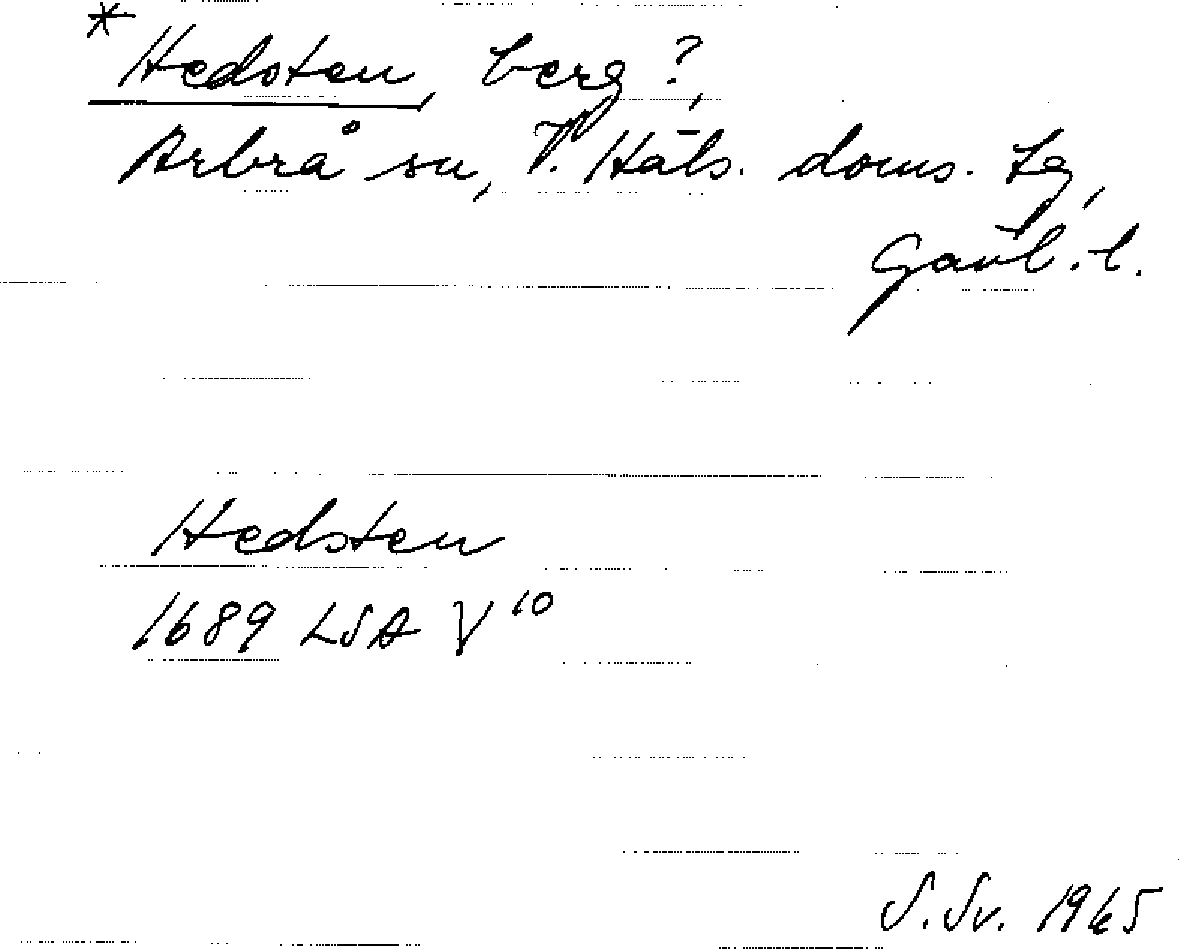 * Hedsten, berg?,
Arbrå sn, V. Häls. doms. tg,
Gävl. l.
Hedsten
1689 LSA V 10
S. Sv. 1965